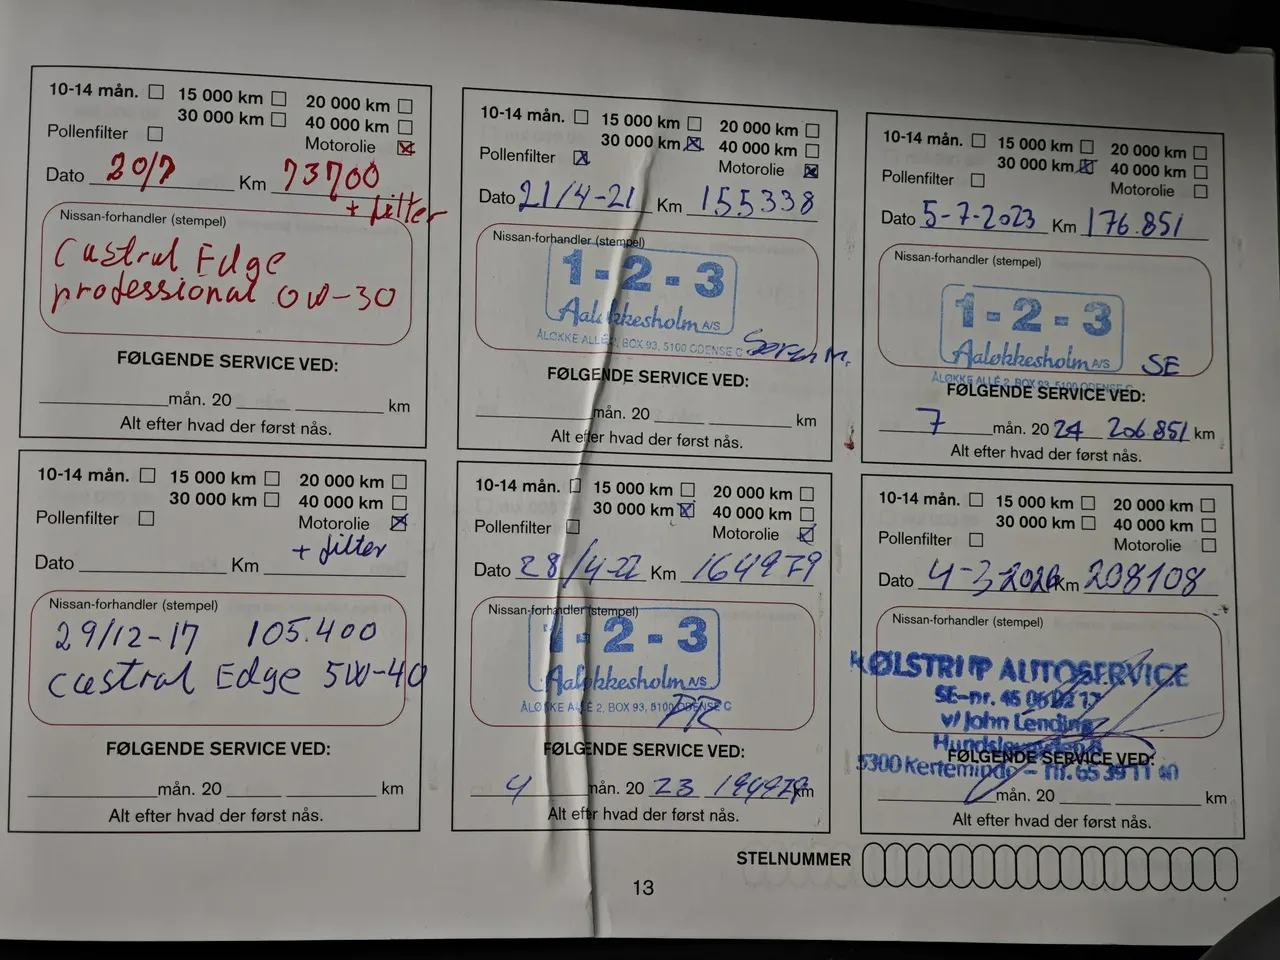 10-14 mån. 15 000 km 20 000 km
30 000 km 40 000 km
Pollenfilter Motorolie
Dato 20/7 Km 73700
+ filter
Nissan-forhandler (stempel)
Castrol Edge
professional 0W-30
FØLGENDE SERVICE VED:
mån. 20 km
Alt efter hvad der først nås.
10-14 mån. 15 000 km 20 000 km
30 000 km 40 000 km
Pollenfilter Motorolie
Dato 21/4-21 Km 155338
Nissan-forhandler (stempel)
1-2-3
Aaløkkesholm A/S
ÅLØKKE ALLÉ 2, BOX 93, 5100 ODENSE C
FØLGENDE SERVICE VED:
mån. 20 km
Alt efter hvad der først nås.
10-14 mån. 15 000 km 20 000 km
30 000 km 40 000 km
Pollenfilter Motorolie
Dato 5-7-2023 Km 176.851
Nissan-forhandler (stempel)
1-2-3
Aaløkkesholm A/S
SE
ÅLØKKE ALLÉ 2, BOX 93, 5100 ODENSE C
FØLGENDE SERVICE VED:
7 mån. 20 24 206.851 km
Alt efter hvad der først nås.
10-14 mån. 15 000 km 20 000 km
30 000 km 40 000 km
Pollenfilter Motorolie
+ filter
Dato Km
Nissan-forhandler (stempel)
29/12-17 105.400
castrol Edge 5W-40
FØLGENDE SERVICE VED:
mån. 20 km
Alt efter hvad der først nås.
10-14 mån. 15 000 km 20 000 km
30 000 km 40 000 km
Pollenfilter Motorolie
Dato 28/4-22 Km 164979
Nissan-forhandler (stempel)
1-2-3
Aaløkkesholm A/S
ÅLØKKE ALLÉ 2, BOX 93, 5100 ODENSE C
PR
FØLGENDE SERVICE VED:
4 mån. 20 23 194979 km
Alt efter hvad der først nås.
10-14 mån. 15 000 km 20 000 km
30 000 km 40 000 km
Pollenfilter Motorolie
Dato 4-3-2026 Km 208108
Nissan-forhandler (stempel)
KØLSTRUP AUTOSERVICE
SE-nr. 45 06 02 17
v/ John Lending
FØLGENDE SERVICE VED:
5300 Kerteminde - Tlf. 65 39 11 40
mån. 20 km
Alt efter hvad der først nås.
STELNUMMER
13